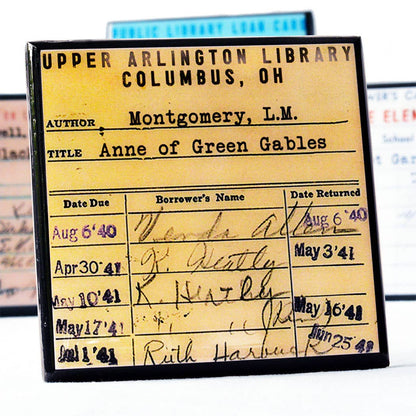 PUBLIC LIBRARY LOAN CARD
UPPER ARLINGTON LIBRARY
COLUMBUS, OH
AUTHOR Montgomery, L.M.
TITLE Anne of Green Gables
Date Due Borrower's Name Date Returned
Aug 6'40 Venda Allen Aug 6 '40
Apr 30 '41 K. Heatly May 3 '41
May 10 '41 K. Heatly May 16 '41
May 17 '41 " " (Ren)
Jul 1 '41 Ruth Harbuck Jun 25 '41